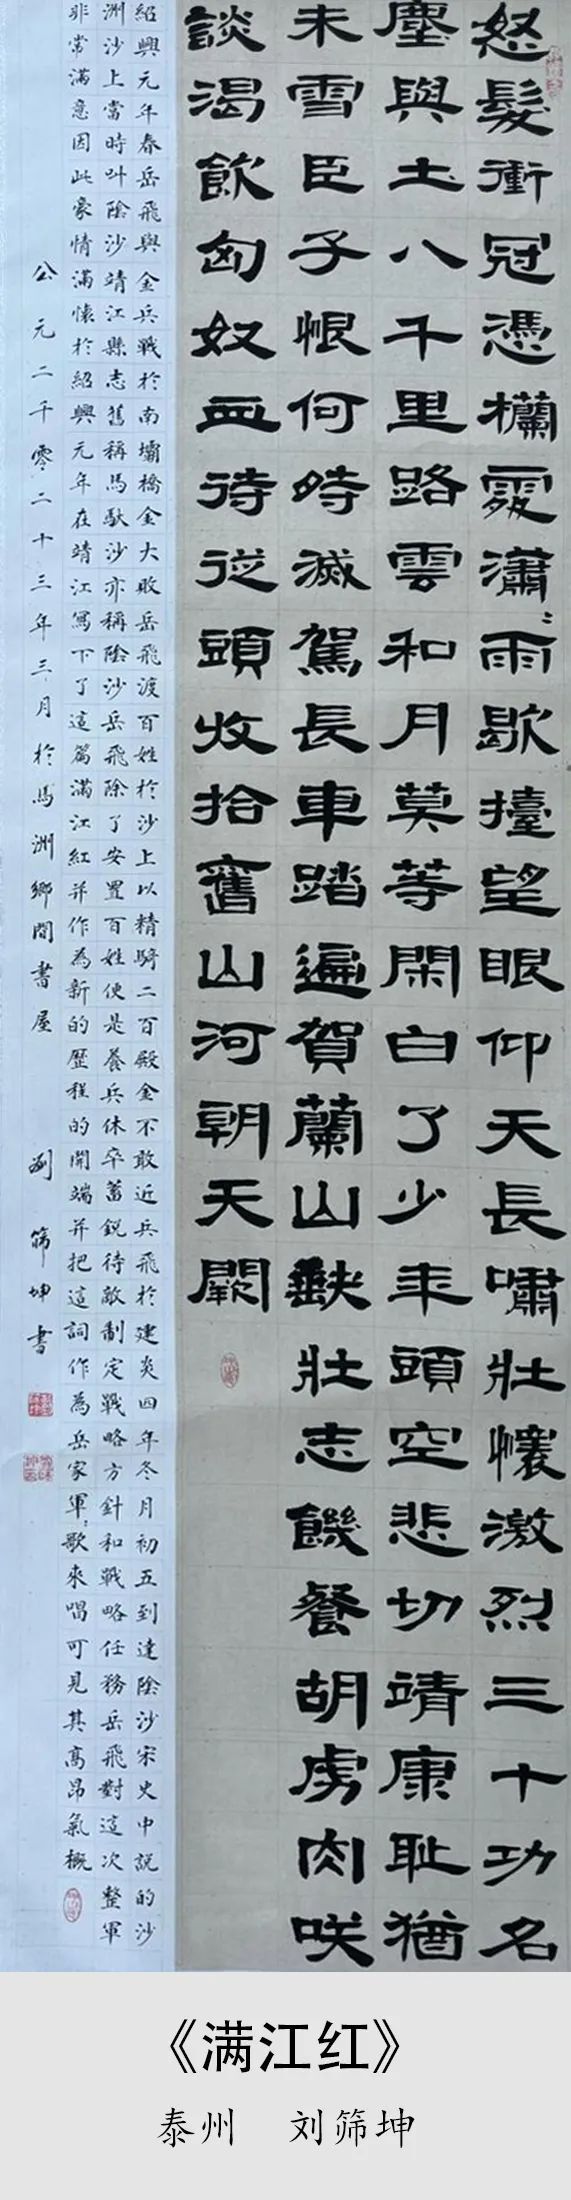 怒髮衝冠憑欄處瀟〻雨歇擡望眼仰天長嘯壯懷激烈三十功名
塵與土八千里路雲和月莫等閑白了少年頭空悲切靖康恥猶
未雪臣子恨何時滅駕長車踏遍賀蘭山缺壯志饑餐胡虜肉咲
談渴飲匈奴血待從頭收拾舊山河朝天闕
紹興元年春岳飛與金兵戰於南壩橋金大敗岳飛渡百姓於沙上以精騎二百殿金不敢近兵飛於建炎四年冬月初五到達陰沙宋史中説的沙
洲沙上當時叫陰沙靖江縣志舊稱馬馱沙亦稱陰沙岳飛除了安置百姓便是養兵休卒蓄鋭待敵制定戰略方針和戰略任務岳飛對這次整軍
非常滿意因此豪情滿懷於紹興元年在靖江寫下了這篇滿江紅并作為新的歷程的開端并把這詞作為岳家軍〻歌來唱可見其高昂氣概
公元二千零二十三年三月於馬洲鄉間書屋 刘筛坤書
《满江红》
泰州 刘筛坤